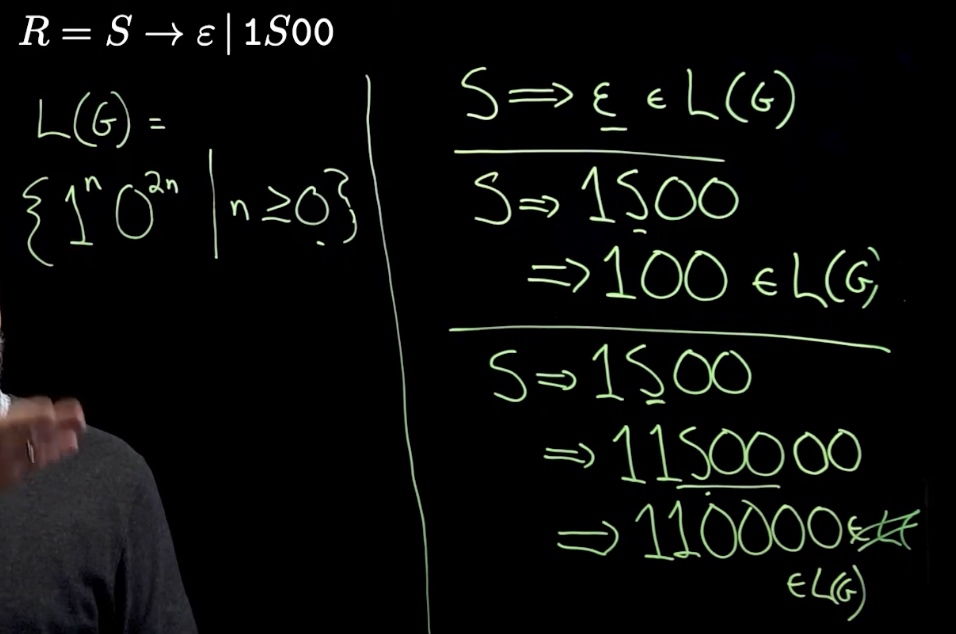 R = S → ε | 1S00
L(G) =
{1ⁿ0²ⁿ | n ≥ 0}
S ⟹ ε ∈ L(G)
S ⟹ 1S00
⟹ 100 ∈ L(G)
S ⟹ 1S00
⟹ 11S0000
⟹ 110000 ∈
∈ L(G)